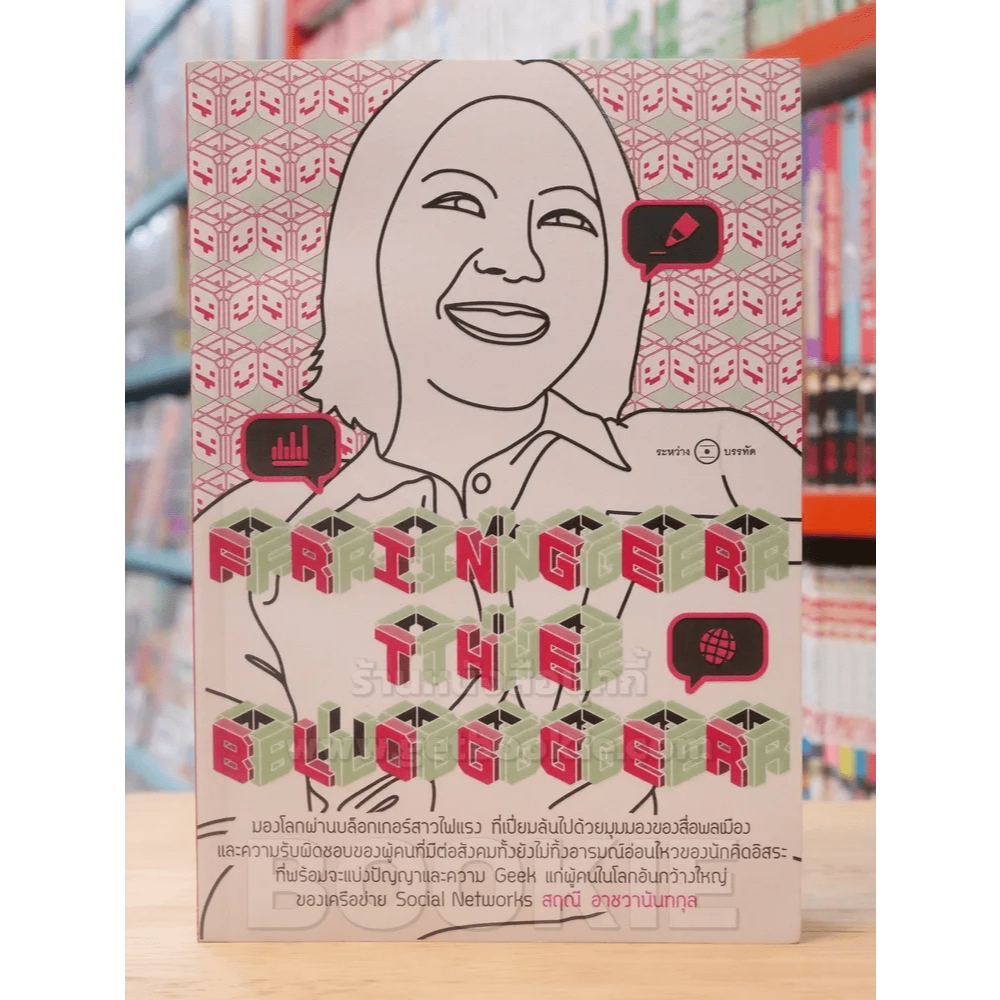 ระหว่าง บรรทัด
FRINGER
THE
BLOGGER
มองโลกผ่านบล็อกเกอร์สาวไฟแรง ที่เปี่ยมล้นไปด้วยมุมมองของสื่อพลเมือง
และความรับผิดชอบของผู้คนที่มีต่อสังคมทั้งยังไม่ทิ้งอารมณ์อ่อนไหวของนักคิดอิสระ
ที่พร้อมจะแบ่งปัญญาและความ Geek แก่ผู้คนในโลกอันกว้างใหญ่
ของเครือข่าย Social Networks สฤณี อาชวานันทกุล
BOOKIE